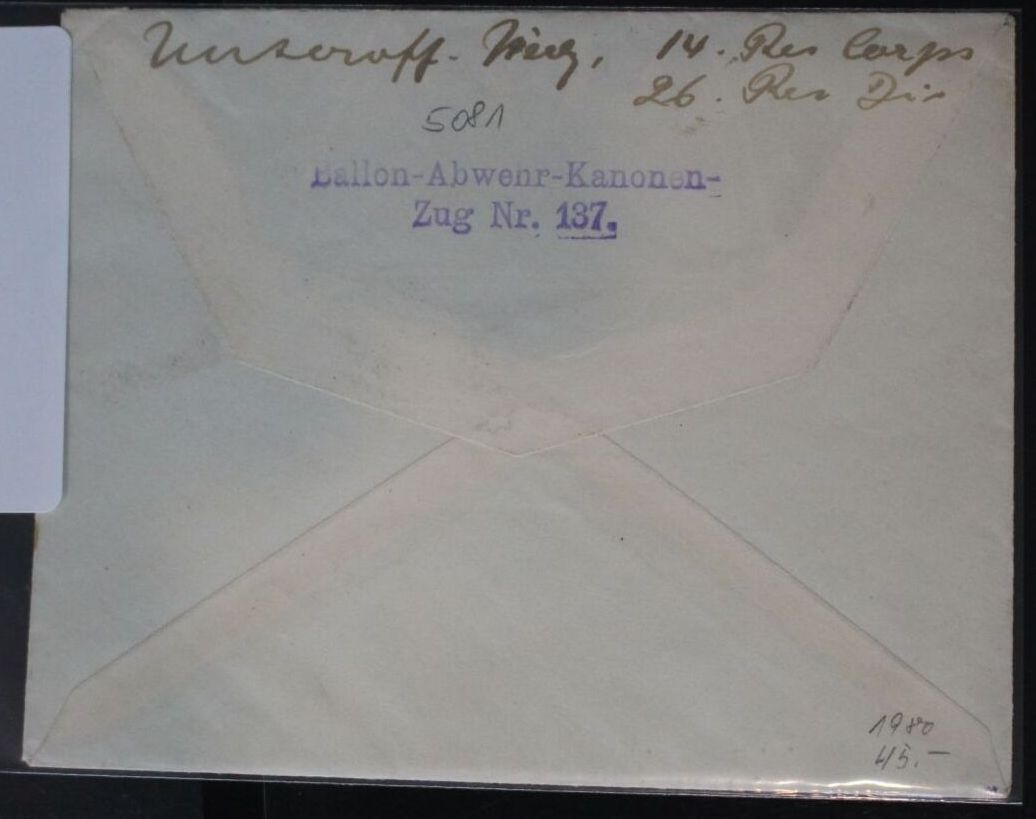 Unteroff. 14. Res Corps
26. Res Div
5081
Ballon-Abwehr-Kanonen-
Zug Nr. 137.
1980
45.-